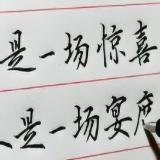 是一场惊喜
是一场宴席